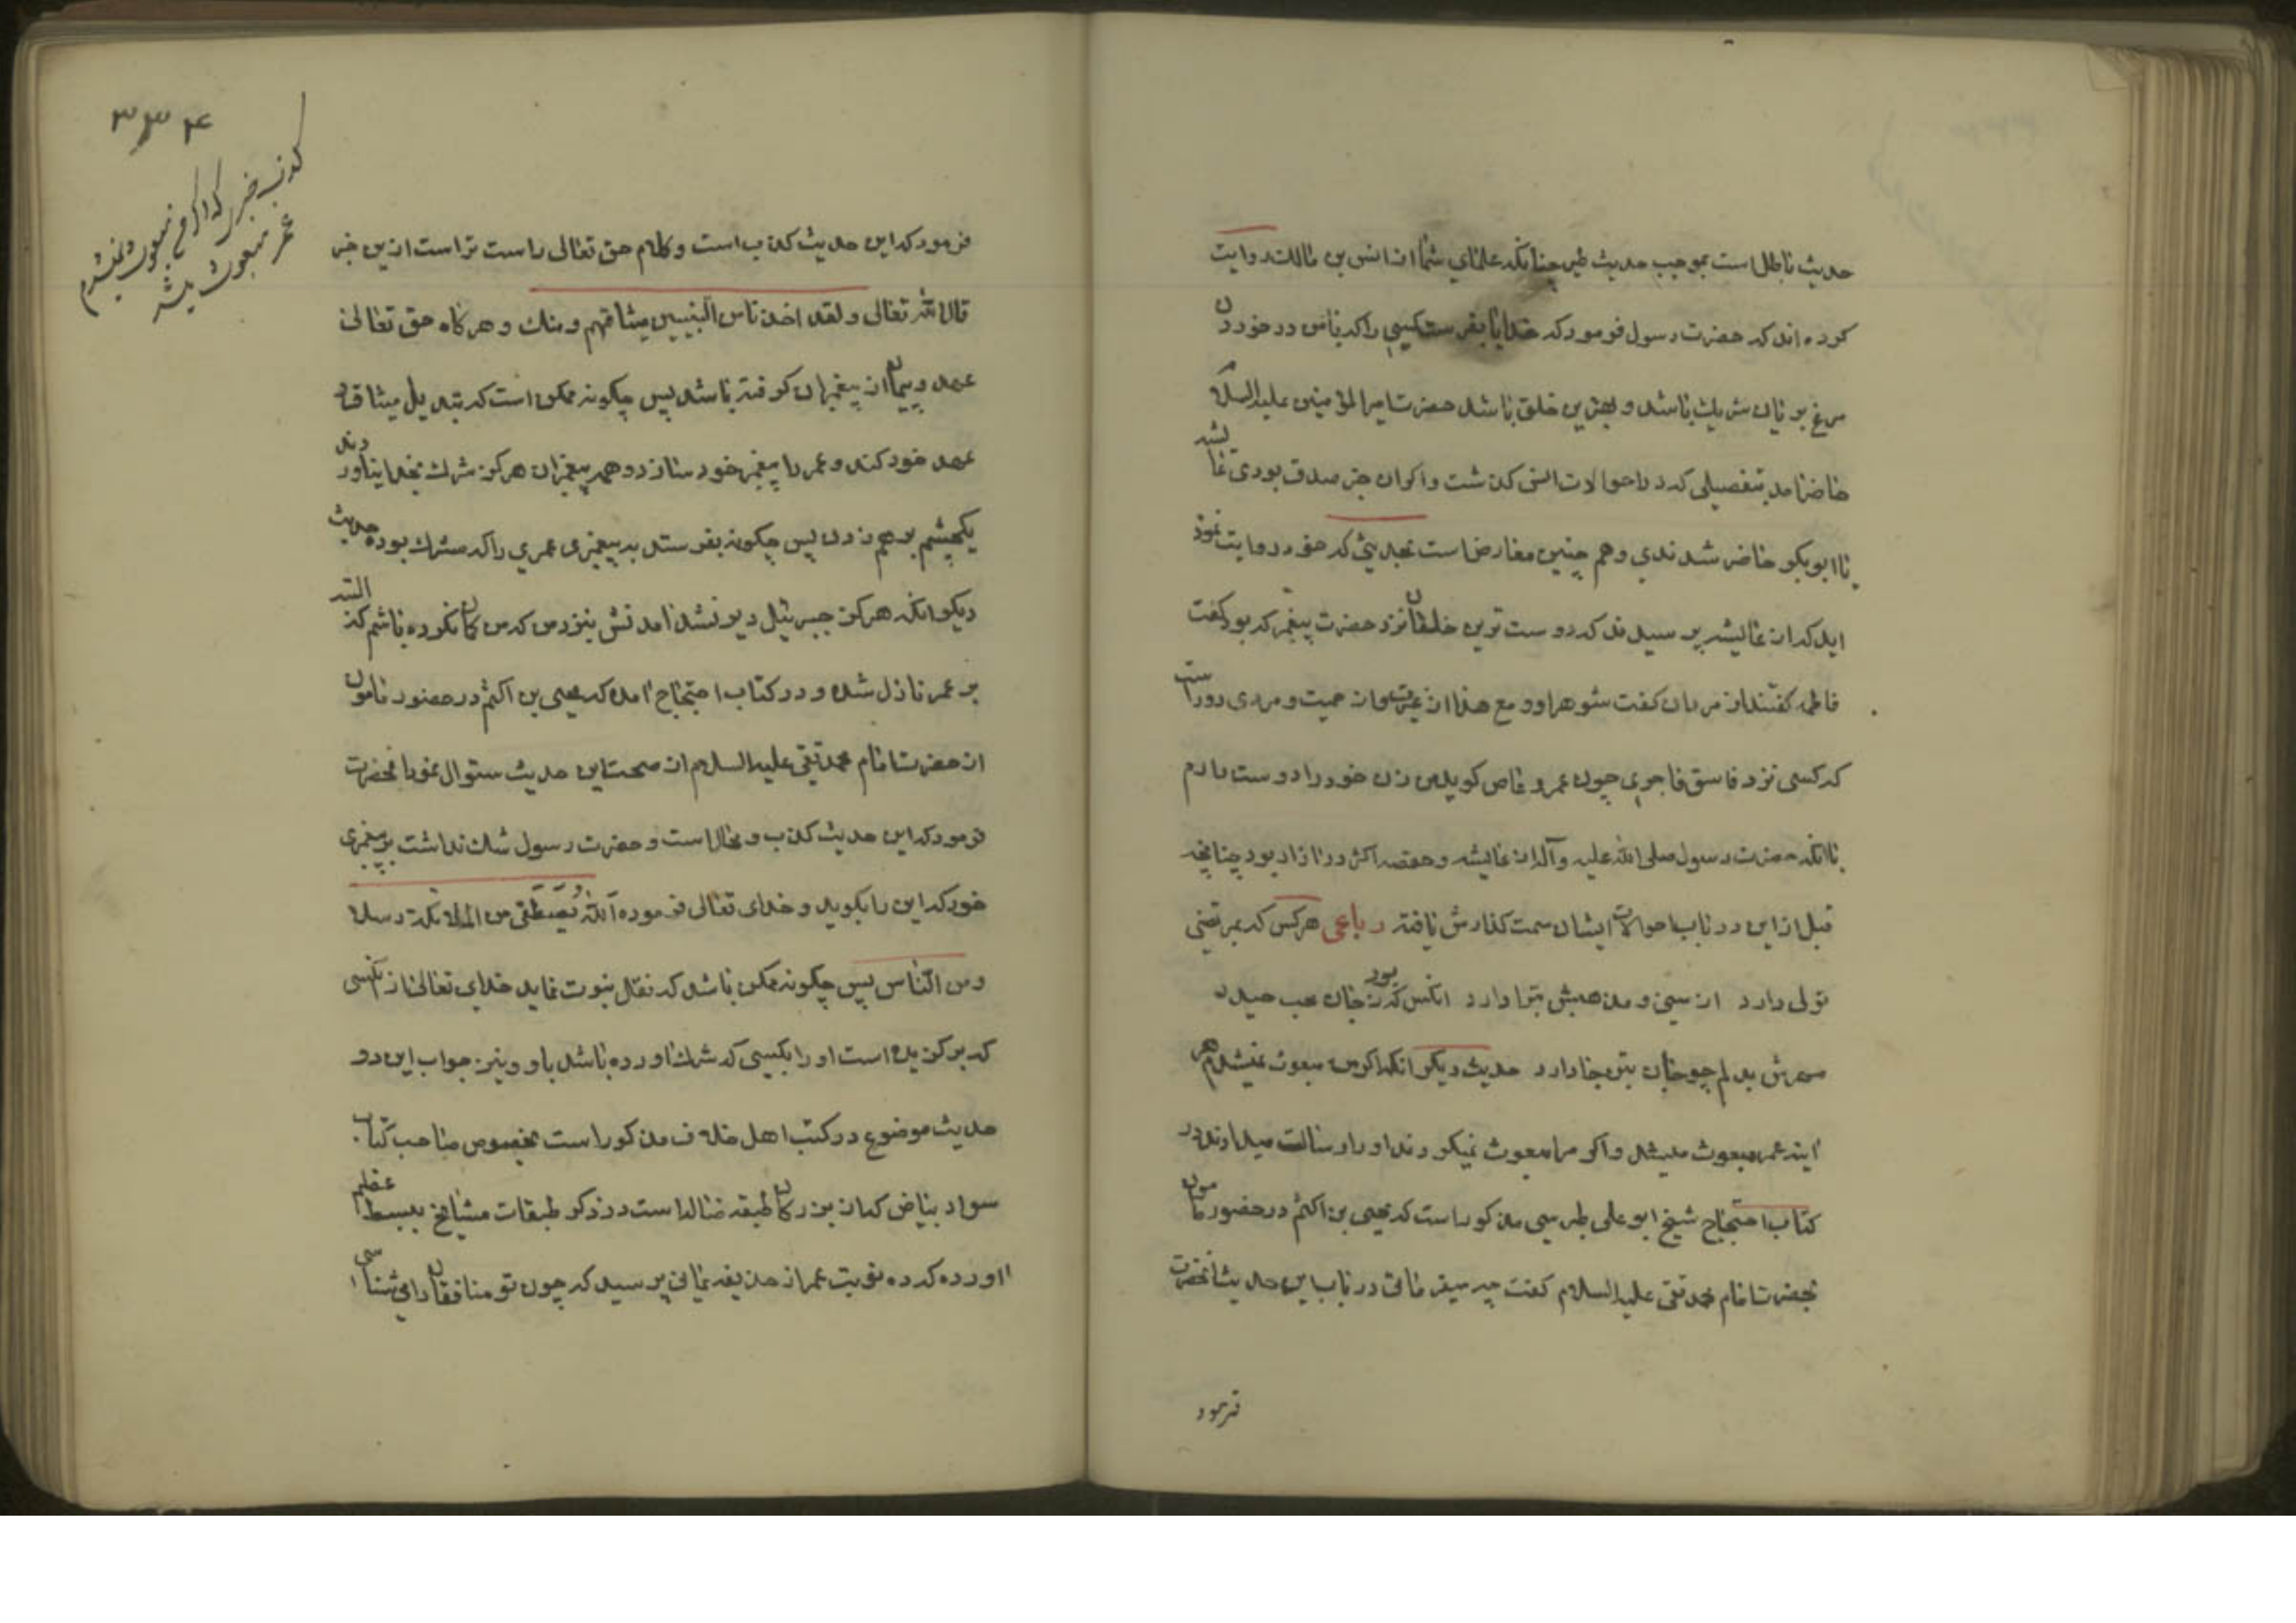 حدیث باطل است بموجب حدیث طیر چنانکه علمای شما از انس بن مالک روایت
کرده اند که حضرت رسول فرمود که خدایا بفرست کسی را که با من در خوردن
مرغ بریان شریک باشد و بهترین خلق باشد حضرت امیرالمؤمنین علیه السلام
حاضر امد بتفصیلی که در احوالات انس کذشت و اکر ان خبر صدق بودی عایشه
یا ابوبکر حاضر شدندی و هم چنین معارض است بحدیثی که خود روایت نموده
اید که از عایشه پرسیدند که دوست ترین خلقان نزد حضرت پیغمبر که بود کفت
فاطمه کفتند از مردان کفت شوهر او و مع هذا از غیرت و از حمیت و مردی دور است
که کسی نزد فاسق فاجری چون عمرو عاص کوید من زن خود را دوست دارم
با انکه حضرت رسول صلی الله علیه وآله از عایشه و حفصه اکثر در ازار بود چنانچه
قبل از این در باب احوالات ایشان سمت کذارش یافته رباعی هرکس که بمرتضی
تولی دارد از سنی و مذهبش تبرا دارد انکس که بود ز جان محب حیدر
مهرش بدلم چو جان بتن جا دارد حدیث دیکر انکه اکر من مبعوث نمیشدم هر
اینه عمر مبعوث میشد و اکر مرا مبعوث نمیکردند او را رسالت میدادند در
کتاب احتجاج شیخ ابو علی طبرسی مذکور است که یحیی بن اکثم در حضور مامون
بحضرت امام محمد تقی علیه السلام کفت چه میفرمائی در باب این حدیث انحضرت
فرمود
۳۳۴
کذب خبر که اگر من مبعوث نمیشدم
عمر مبعوث میشد
فرمود که این حدیث کذب است و کلام حق تعالی راست تر است ازین خبر
قال الله تعالی ولقد اخذنا من النبیین میثاقهم ومنک و هرکاه حق تعالی
عهد و پیمان از پیغمبران کرفته باشد پس چکونه ممکن است که تبدیل میثاق و
عهد خود کند و عمر را پیغمبر خود سازد و همه پیغمبران هرکز شرک بخدا نیاوردند
یکچشم بر هم زدن پس چکونه بفرستد به پیغمبری عمری را که مشرک بوده حدیث
دیکر انکه هرکز جبرئیل دیر نشد امدنش بنزد من که من کمان نکرده باشم که البته
بر عمر نازل شده و در کتاب احتجاج امده که یحیی بن اکثم در حضور مامون
از حضرت امام محمد تقی علیه السلام از صحت این حدیث سئوال نمود انحضرت
فرمود که این حدیث کذب و محال است و حضرت رسول شک نداشت بر پیغمبری
خود که این را بکوید و خدای تعالی فرموده اللّه یصطفی من الملائکة رسلا
ومن النّاس پس چکونه ممکن باشد که نقل نبوت نماید خدای تعالی از انکسی
که برکزیده است او را بکسی که شرک اورده باشد باو و نیز جواب این دو
حدیث موضوع در کتب اهل خلاف مذکور است بخصوص صاحب کتاب
سواد بیاض که از بزرکان طبقه ضاله است در ذکر طبقات مشایخ ببسط عظیم
اورده که ده نوبت عمر از حذیفه یمانی پرسید که چون تو منافقان را می شناسی